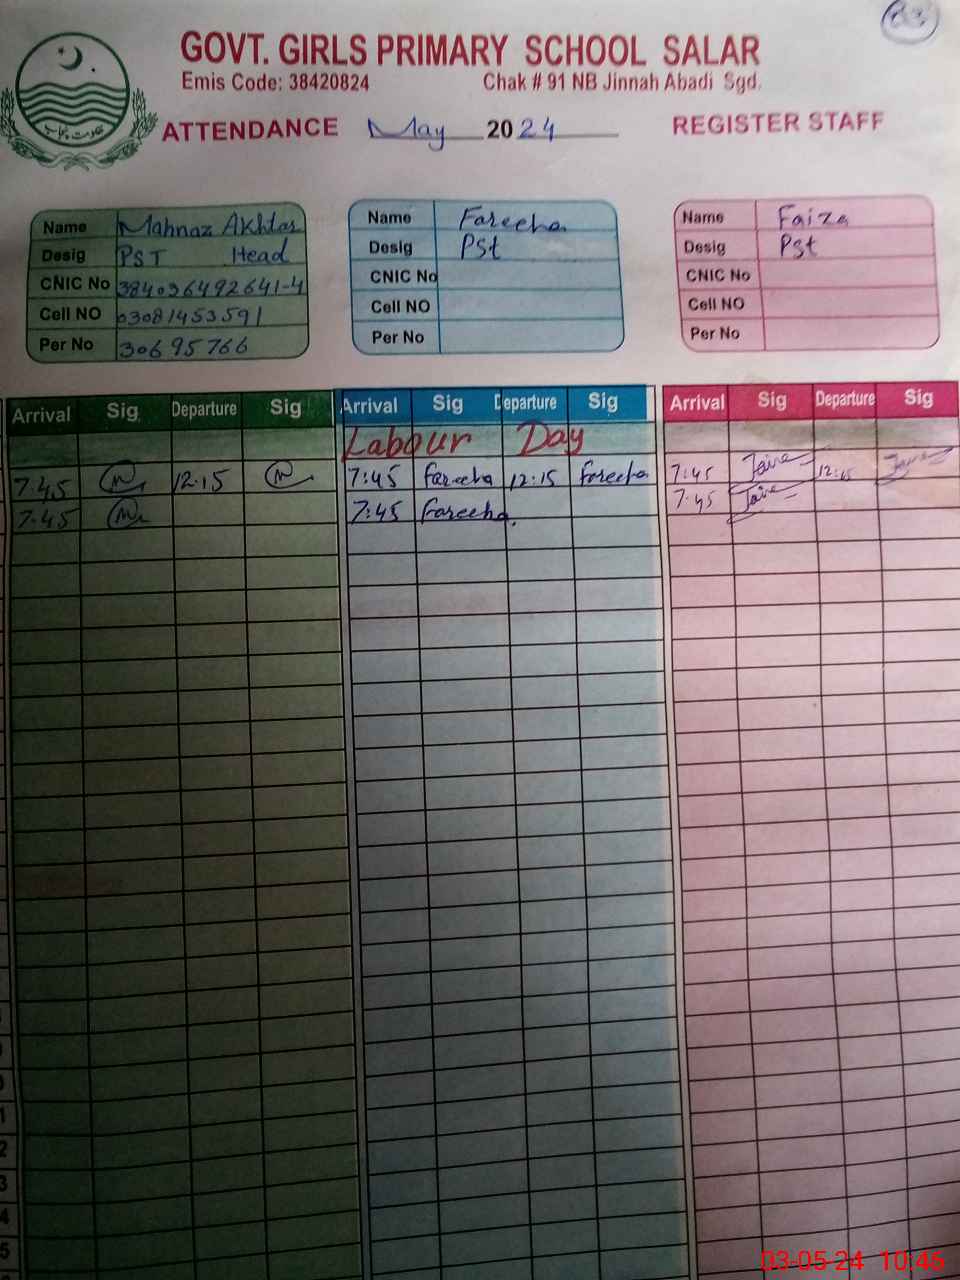 83
GOVT. GIRLS PRIMARY SCHOOL SALAR
Emis Code: 38420824 Chak # 91 NB Jinnah Abadi Sgd.
حکومت پنجاب
ATTENDANCE May 2024 REGISTER STAFF
Name Mahnaz Akhtar
Desig PST Head
CNIC No 384036492641-4
Cell NO 03081453591
Per No 30695766
Name Fareeha
Desig Pst
CNIC No
Cell NO
Per No
Name Faiza
Desig Pst
CNIC No
Cell NO
Per No
Arrival Sig Departure Sig Arrival Sig Departure Sig Arrival Sig Departure Sig
Labour Day
7:45 12:15 7:45 Fareeha 12:15 Fareeha 7:45 Faiza 12:15 Faiza
7:45 7:45 Fareeha. 7:45 Faiza
1
2
3
4
5
03-05-24 10:46